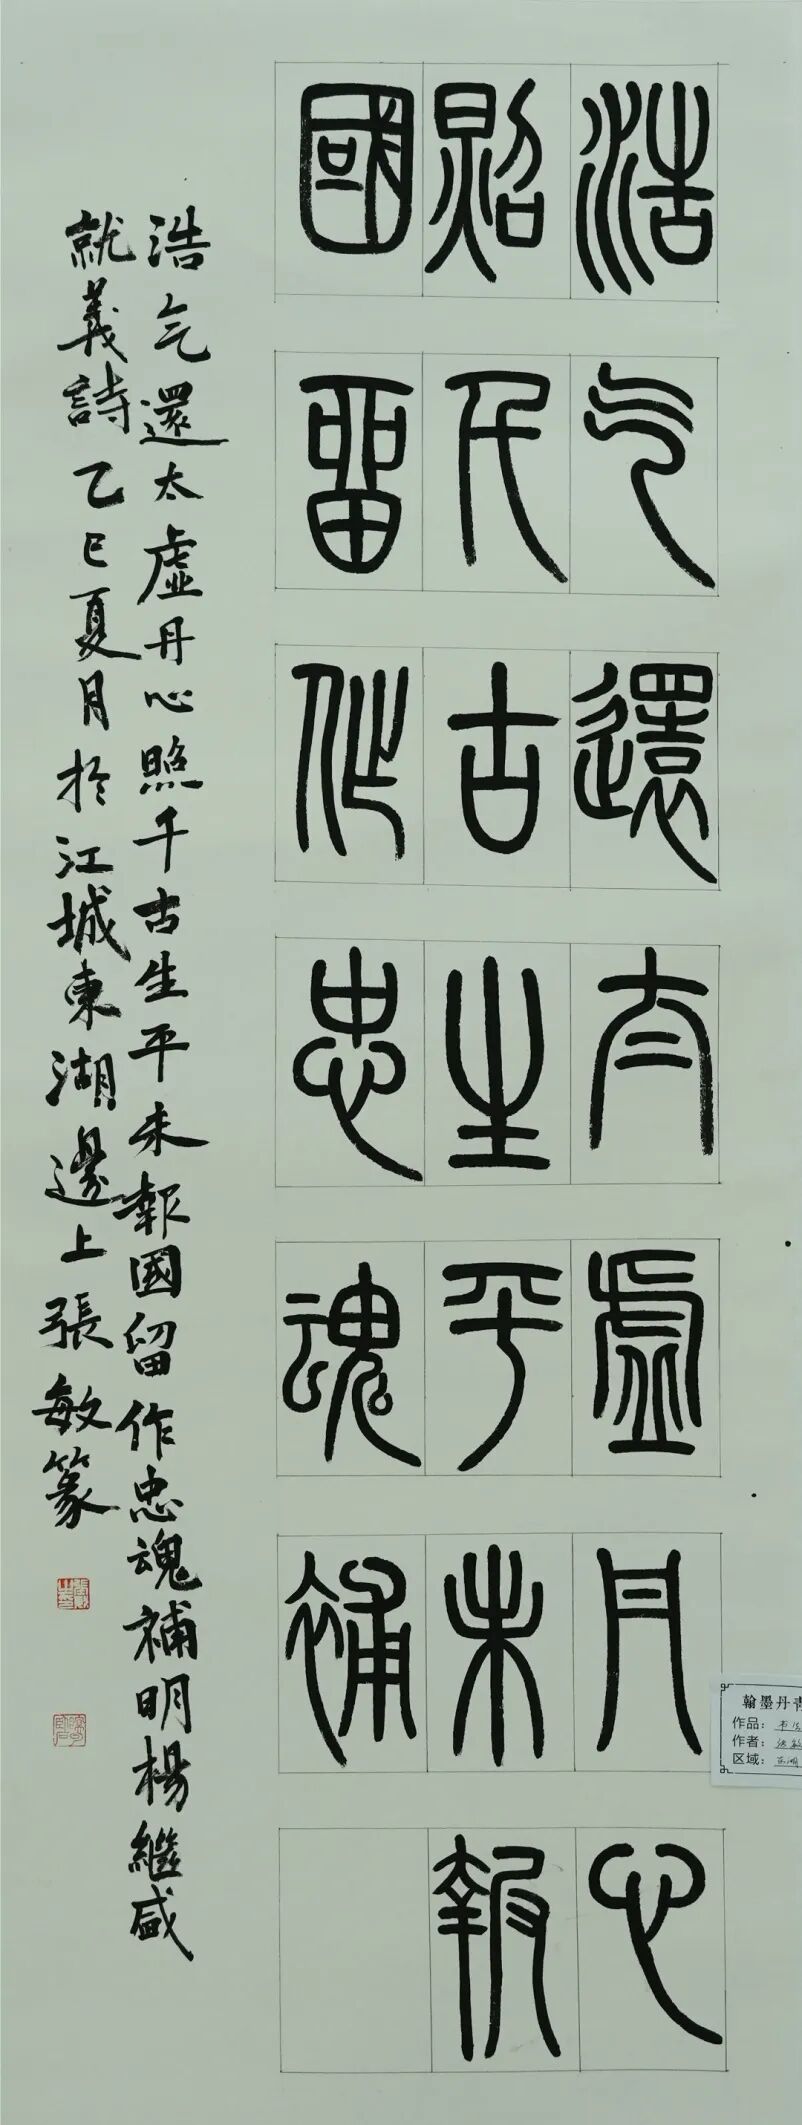 浩气還太虛丹心
照千古生平未報
國留作忠魂補
浩气還太虛丹心照千古生平未報國留作忠魂補明楊繼盛
就義詩乙巳夏月於江城東湖邊上張敏篆
翰墨丹青
作品：
作者：张敏
区域：东湖